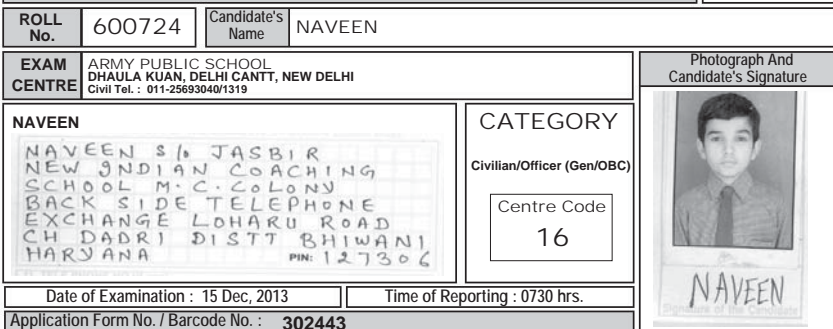 ROLL No. 600724 Candidate's Name NAVEEN
EXAM CENTRE
ARMY PUBLIC SCHOOL
DHAULA KUAN, DELHI CANTT, NEW DELHI
Civil Tel. : 011-25693040/1319
Photograph And
Candidate's Signature
NAVEEN
NAVEEN S/o JASBIR
NEW INDIAN COACHING
SCHOOL M.C. COLONY
BACK SIDE TELEPHONE
EXCHANGE LOHARU ROAD
CH DADRI DISTT BHIWANI
HARYANA PIN: 127306
CATEGORY
Civilian/Officer (Gen/OBC)
Centre Code
16
NAVEEN
Signature of the Candidate
Date of Examination : 15 Dec, 2013
Time of Reporting : 0730 hrs.
Application Form No. / Barcode No. : 302443